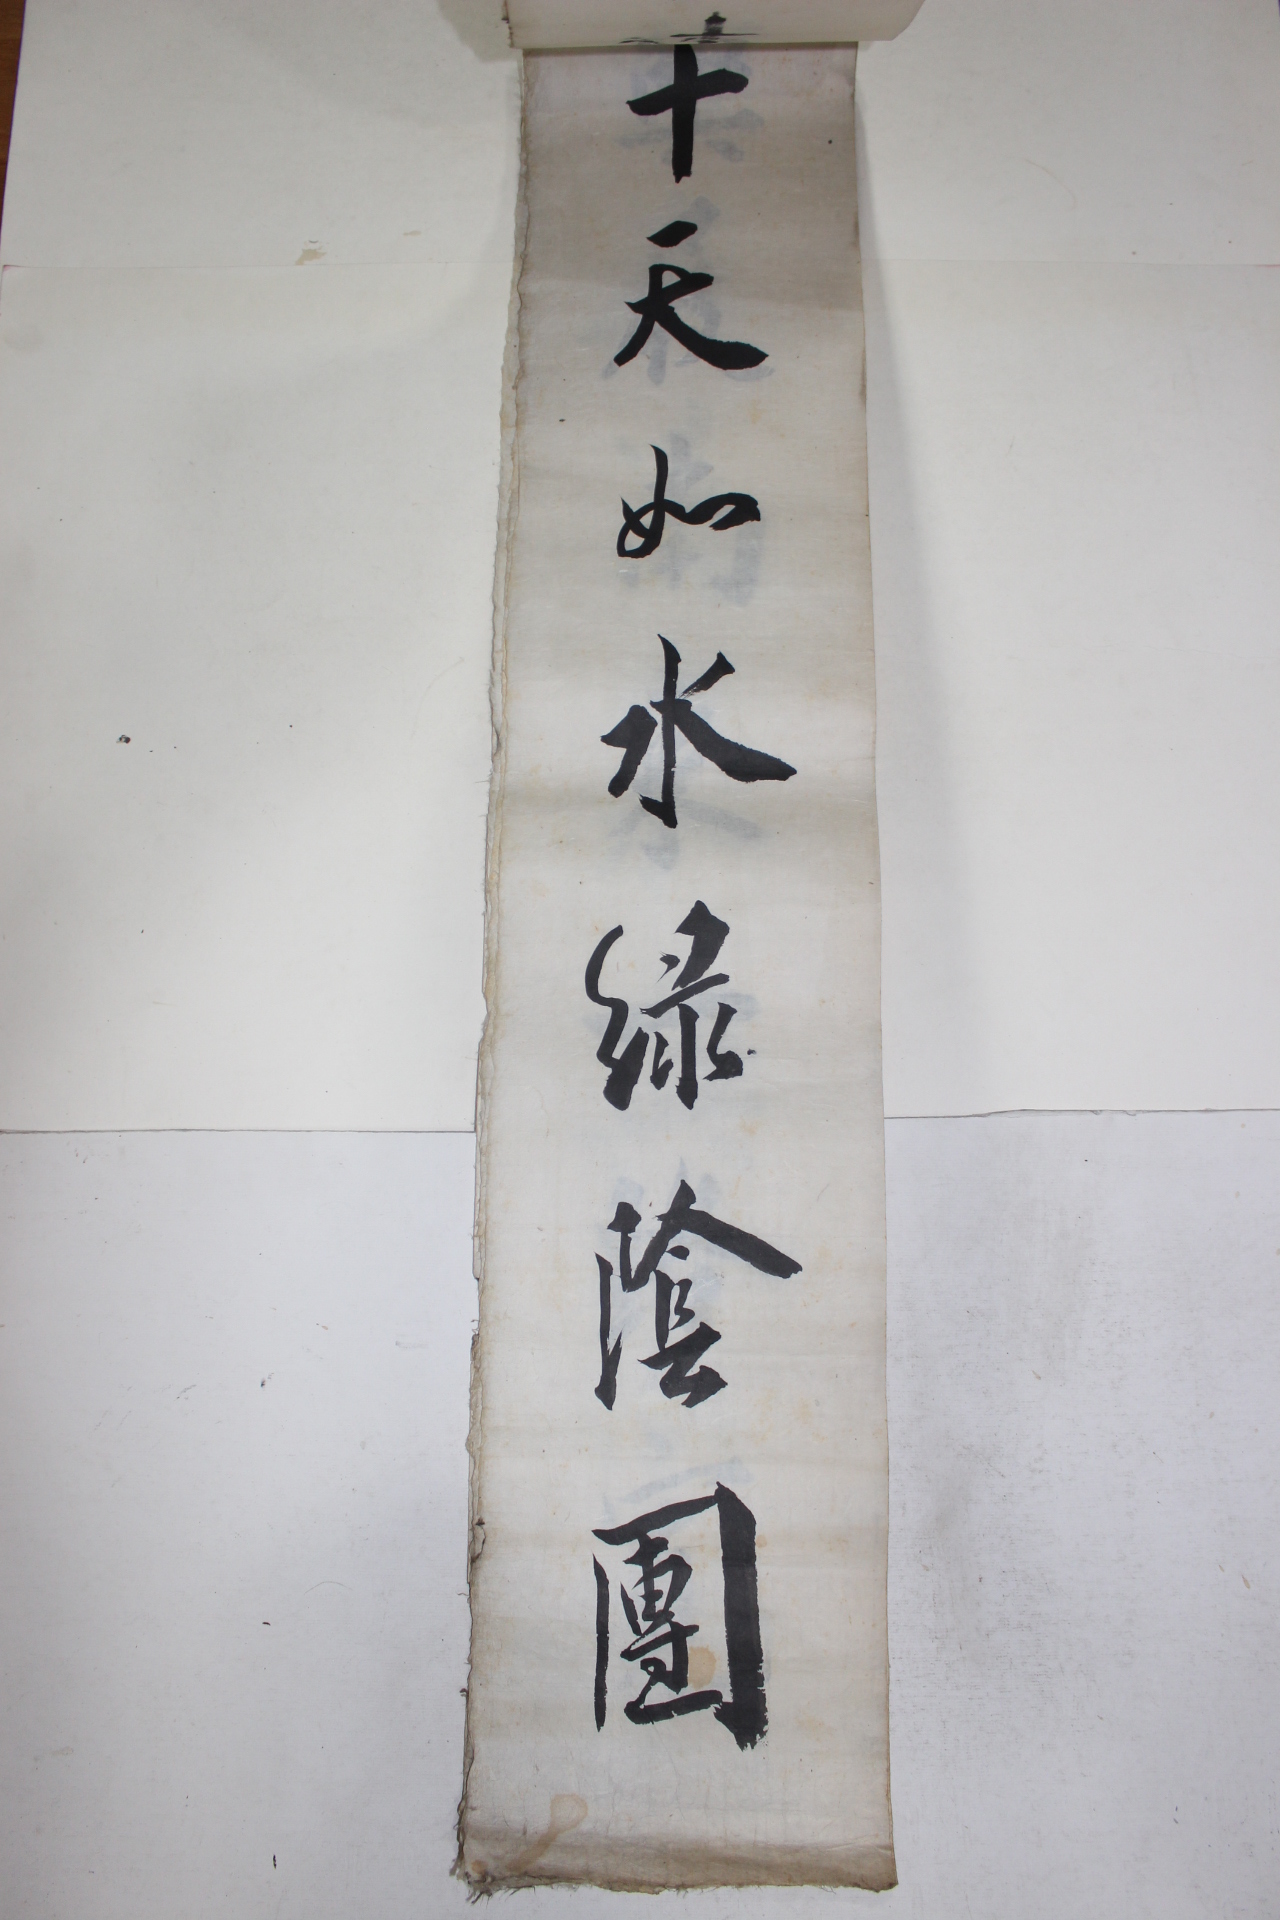 十天如水綠陰團